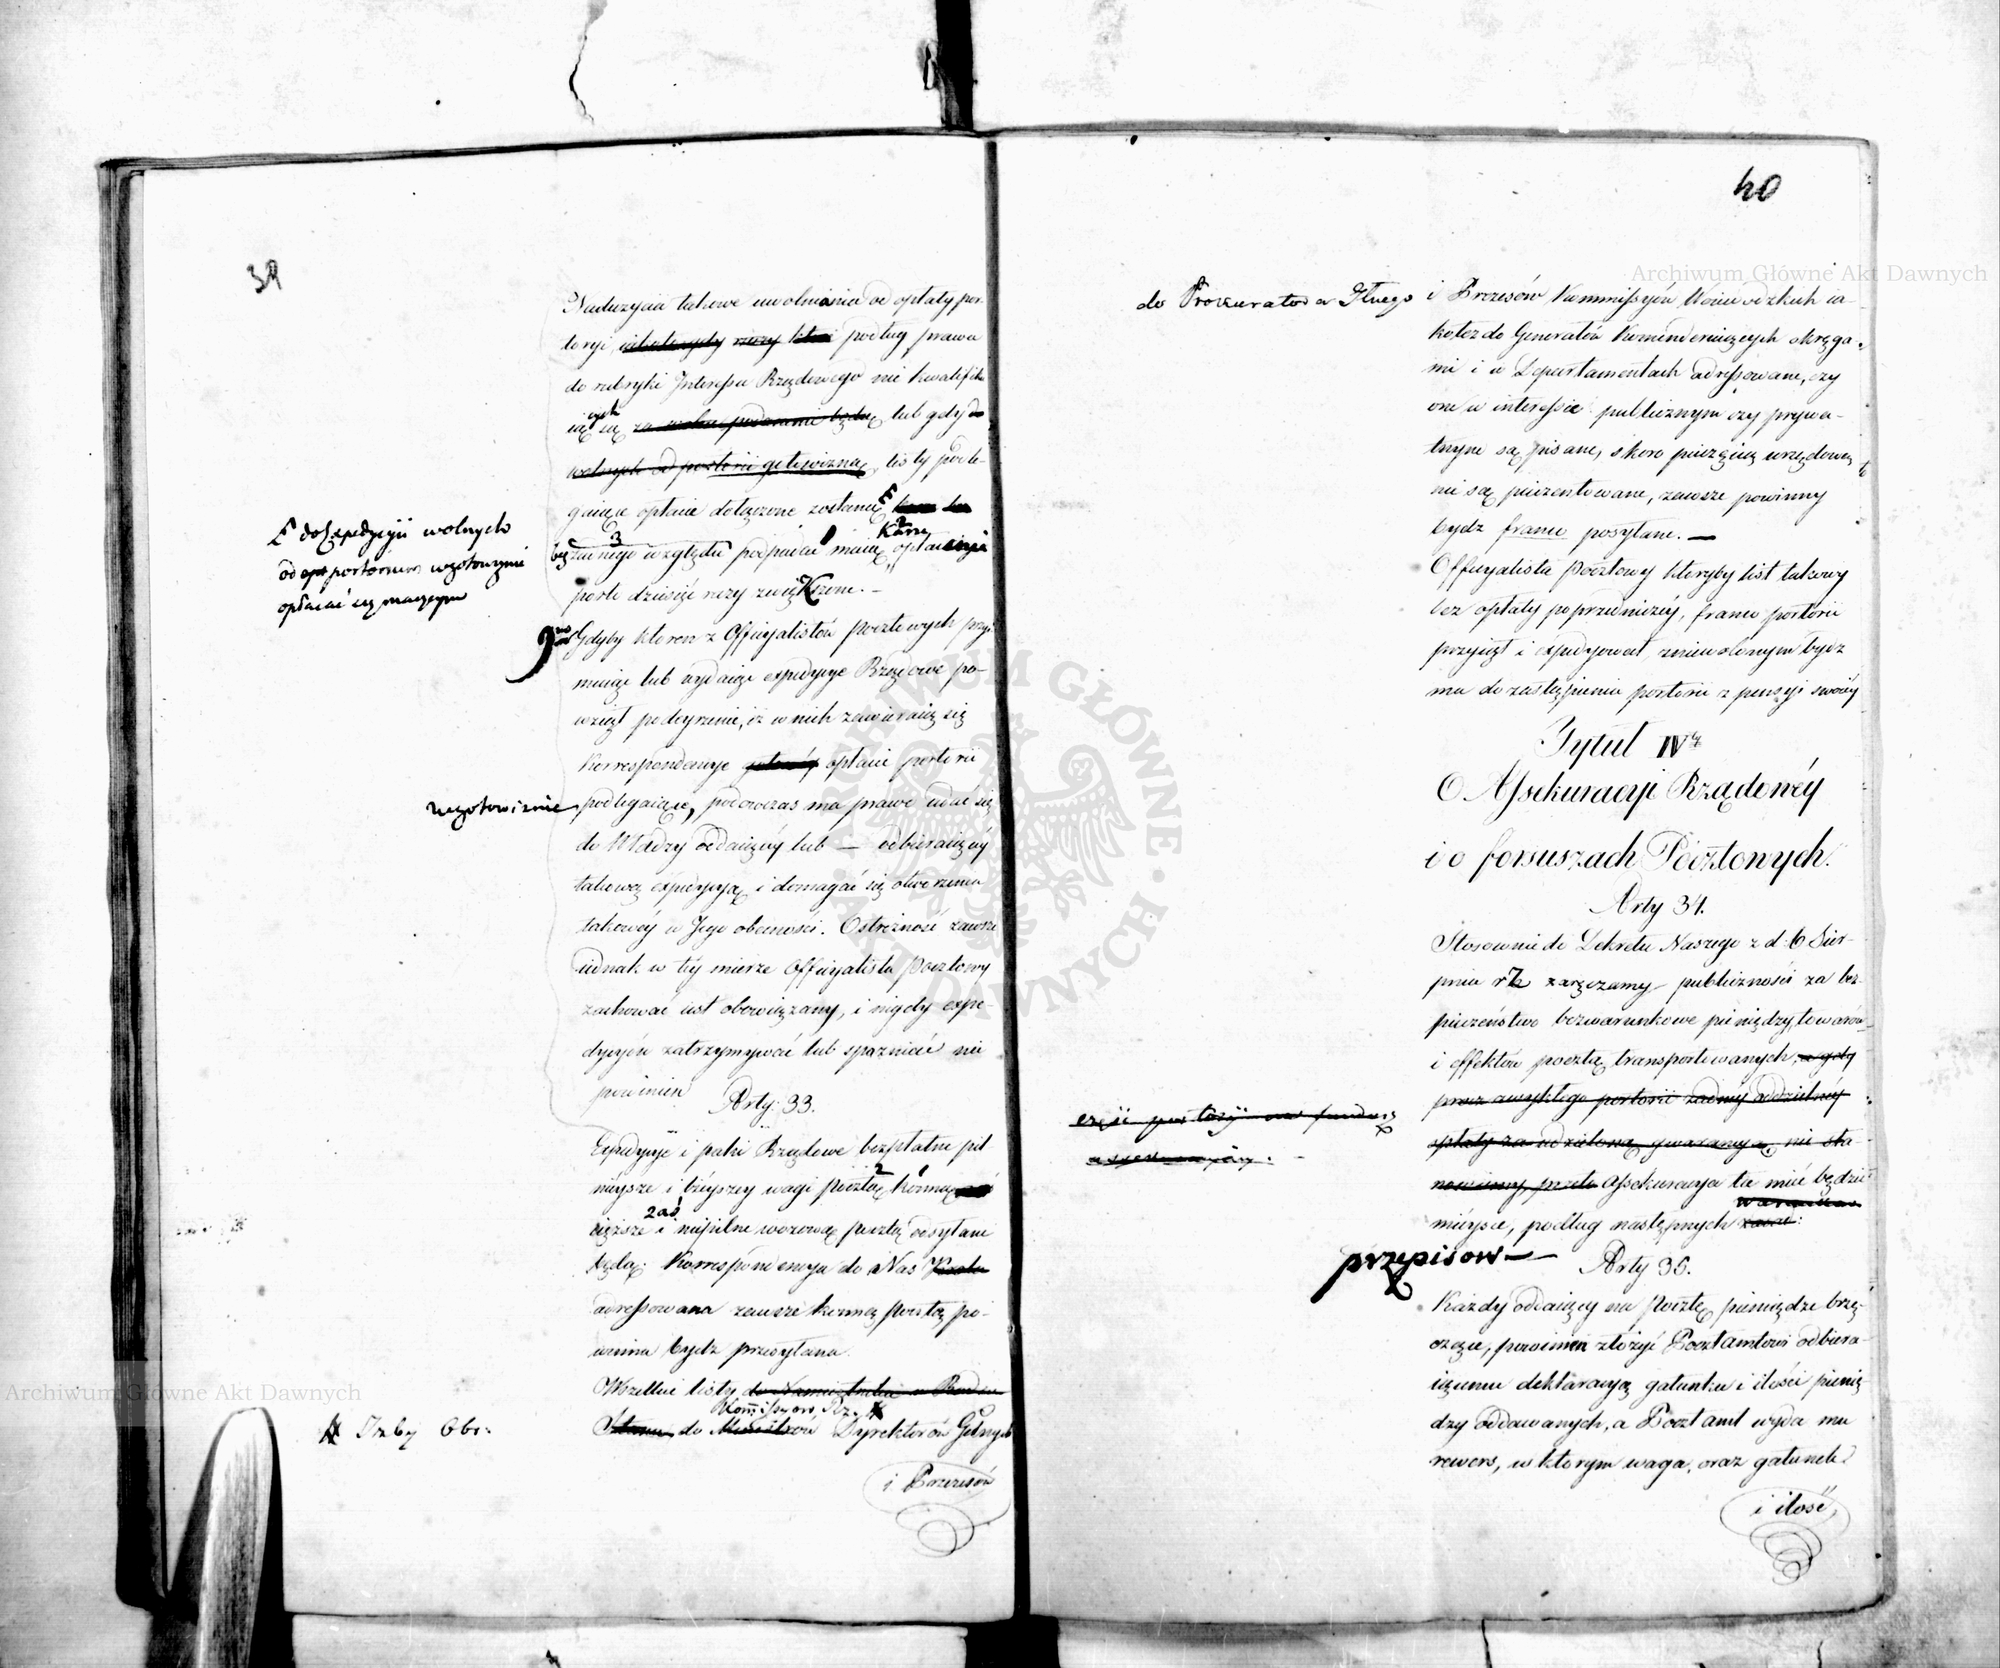 39
Nadużycia takowe uwolnienia od opłaty por
toryi, podług prawa
do rubryki Interessu Rządowego nie kwalifiku
iąc się lub gdy do
wolnych od portorii gotowizną, listy podle-
gaiące opłacie dołączone zostaną
bez żadnego względu podpadać maią karze opłacenia
porto dziesięć razy zwiększone. —
£ do Expedycyii wolnych
od portorium wgotowiznie
opłacać się maiącym
9no Gdyby któren z Officyalistów Pocztowych przy
muiąc lub wydaiąc expedycye Rządowe po-
wziął podeyrzenie, iż w nich zawieraią się
Korrespondencye opłacie portorii
wgotowiznie podlegaiące, podówczas ma prawo udać się
do Władzy oddaiącéy lub — odbieraiącéy
takową expedycyą i domagać się otworzenia
takowéy w Jego obecności. Ostrożność zawsze
iednak w téy mierze Officyalista Pocztowy
zachować iest obowiązany, i nigdy expe-
dycyów zatrzymywać lub spaźniać nie
powinien
Arty: 33.
Expedycye i paki Rządowe bezpłatne pil
niéysze i lżéyszey wagi pocztą konną
cięższe zaś i niepilne wozową pocztą odsyłane
będą. Korrespondencya do Nas Króla
adressowana zawsze konną pocztą po-
winna bydź przesyłana.
Wszelkie listy do Namiestnika w Radzie
Kommissyów Rz.
Stanu, do Ministrów Dyrektorów Głnych
Izby Obr:
i Prezesów
40
do Prokuratora Głnego i Prezesów Kommissyów Woiewódzkich ia-
koteż do Generałów Kommenderuiących okręga-
mi i w Departamentach adressowane, czy
one w interessie publicznym czy prywa-
tnym są pisane, skoro pieczęcią urzędową
nie są pieczętowane, zawsze powinny
bydź franco posyłane. —
Officyalista Pocztowy któryby list takowy
bez opłaty poprzedniczéy, franco portorii
przyiął i expedyował, zniewolonym bydź
ma do zastąpienia portorii z pensyi swoiéy
Tytuł IVty
O Assekuracyi Rządowéy
i o forsuszach Pocztowych.
Arty 34.
Stosownie do Dekretu Naszego z d: 6 Sier-
pnia zaręczamy publiczności za bez-
pieczeństwo bezwarunkowe pieniędzy, towarów
i effektów pocztą transportowanych, a gdy
prócz zwykłego portorii żadnéy oddzielnéy
opłaty za udzieloną gwarancyą, nie sta
nowiemy, przeto Assekuracya ta mieć będzie
mieysce, podług następnych
przepisow —
Arty 35.
Każdy oddaiący na Pocztę pieniądze brzę-
czące, powinien złożyć Pocztamtowi odbiera-
iącemu deklaracyą gatunku i ilości pienię
dzy oddawanych, a Pocztamt wyda mu
rewers, w którym waga, oraz gatunek
i ilość,
Archiwum Główne Akt Dawnych
Archiwum Główne Akt Dawnych
ARCHIWUM GŁÓWNE · AKT DAWNYCH ·